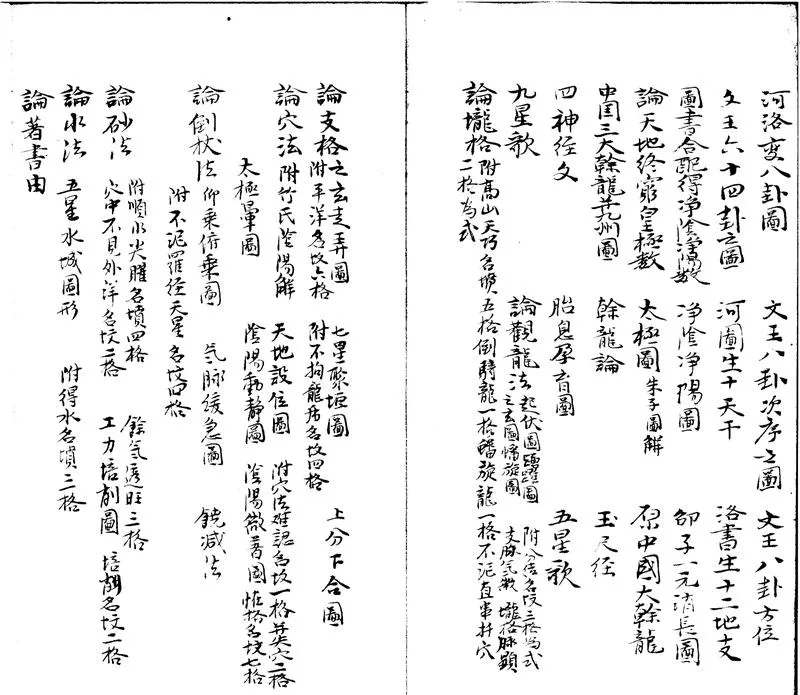 河洛变八卦圖　文王八卦次序之圖　文王八卦方位
文王六十四卦之圖　河圖生十天干　洛書生十二地支
圖書合配得净陰净陽数　净陰净陽圖　邵子一元消長圖
論天地終窮皇極数　太極圖　朱子圖解　原中國大幹龍
中国三大幹龍并九州圖　幹龍論　玉尺經
四神經文　胎息孕育圖　五星歌
九星歌　論觀龍法　起伏圖　之玄圖　附分結名坟三格為式　支脉氣
論壠格　附髙山天巧名墳五格　倒騎龍一格　蟠旋龍一格　不泥直串井穴二格為式
論支格　之玄走弄圖　附平洋名坟六格　七星聚垣圖　附不拘龍居名坟四格　上分下合圖
論穴法　附竹氏陰陽解　天地設位圖　附穴法难認名坟一格　并英穴二格
太極暈圖　陰陽動静圖　陰陽微著圖　怪格名坟七格
論倒杖法　仰乘俯乘圖　氣脉缓急圖　饒减法
附不泥羅經天星名坟四格
論砂法　附順水尖臞名墳四格　穴中不見外洋名坟二格　餘氣透旺三格　工力培削圖　培削名坟二格
論水法　五星水城圖形　附得水名墳三格
論著書由